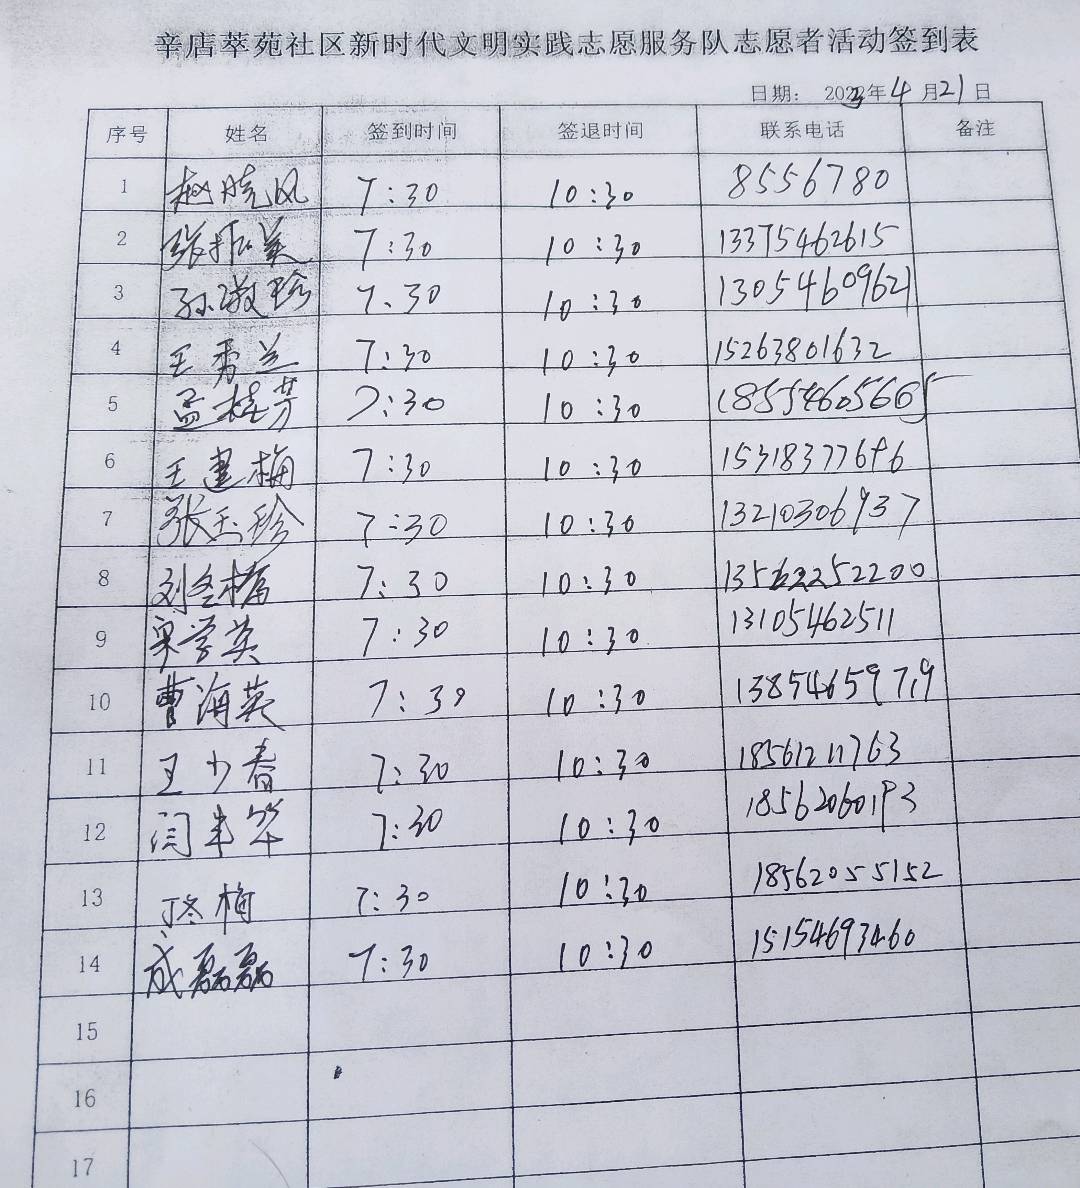 辛店萃苑社区新时代文明实践志愿服务队志愿者活动签到表
日期: 2023年4月21日
序号 姓名 签到时间 签退时间 联系电话 备注
1 赵晓风 7:30 10:30 8556780
2 张振美 7:30 10:30 13375462615
3 孙淑珍 7.30 10:30 13054609621
4 王秀兰 7:30 10:30 15263801632
5 孟桂芳 7:30 10:30
6 王建梅 7:30 10:30 15318377696
7 张玉珍 7:30 10:30 13210306937
8 刘冬梅 7:30 10:30
9 宋学英 7:30 10:30 13105462511
10 曹海英 7:30 10:30 13854659719
11 王少春 7:30 10:30 18561211763
12 闫丰华 7:30 10:30 18562060193
13 佟梅 7:30 10:30 18562055152
14 成磊磊 7:30 10:30 15154693460
15
16
17